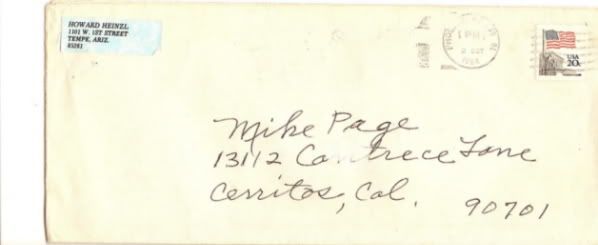 HOWARD HEINZL
1101 W. 1ST STREET
TEMPE, ARIZ.
85281
1 PM
2 OCT
1984
USA
20c
Mike Page
13112 Contrece Lane
Cerritos, Cal. 90701